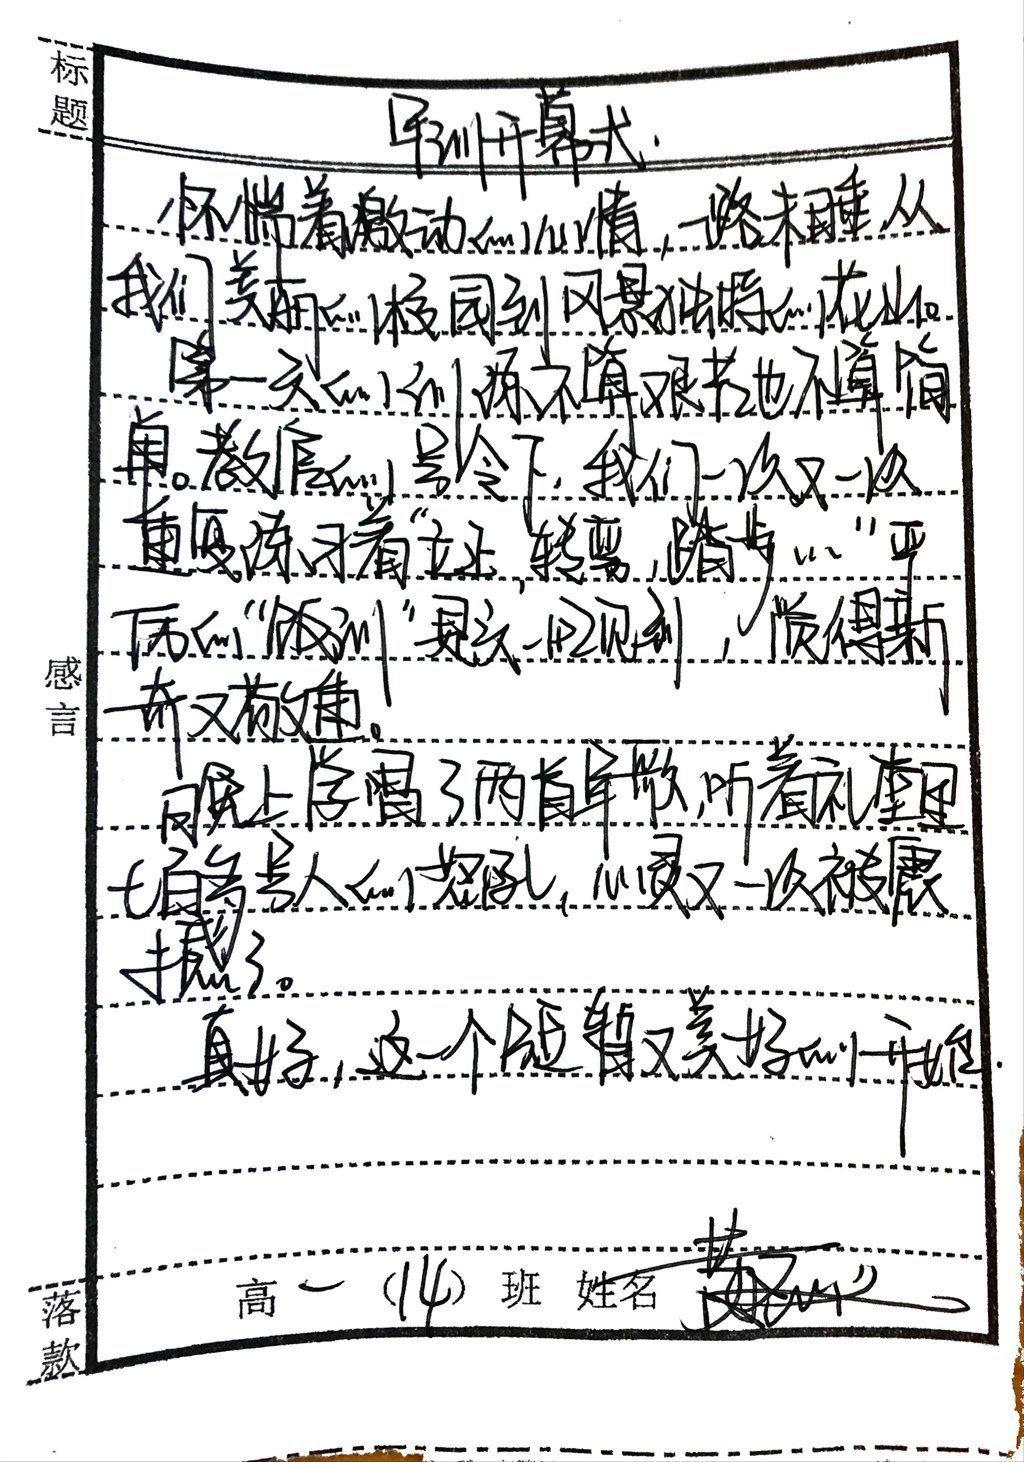 标题
军训开幕式.
怀惴着激动的心情，一路未睡从
我们美丽的校园到风景独特的花山。
第一天的训练不算艰苦也不算简
单。教官的号令下，我们一次又一次
重复练习着“立正，转弯，踏步…”平
历的“阪训”真实一见到，觉得新
奇又敬重。
晚上学唱了两首军歌，听着礼堂里
七百多号人的怒吼，心灵又一次被震
撼了。
真好，这一个短暂又美好的开始.
感言
落款
高一（14）班 姓名